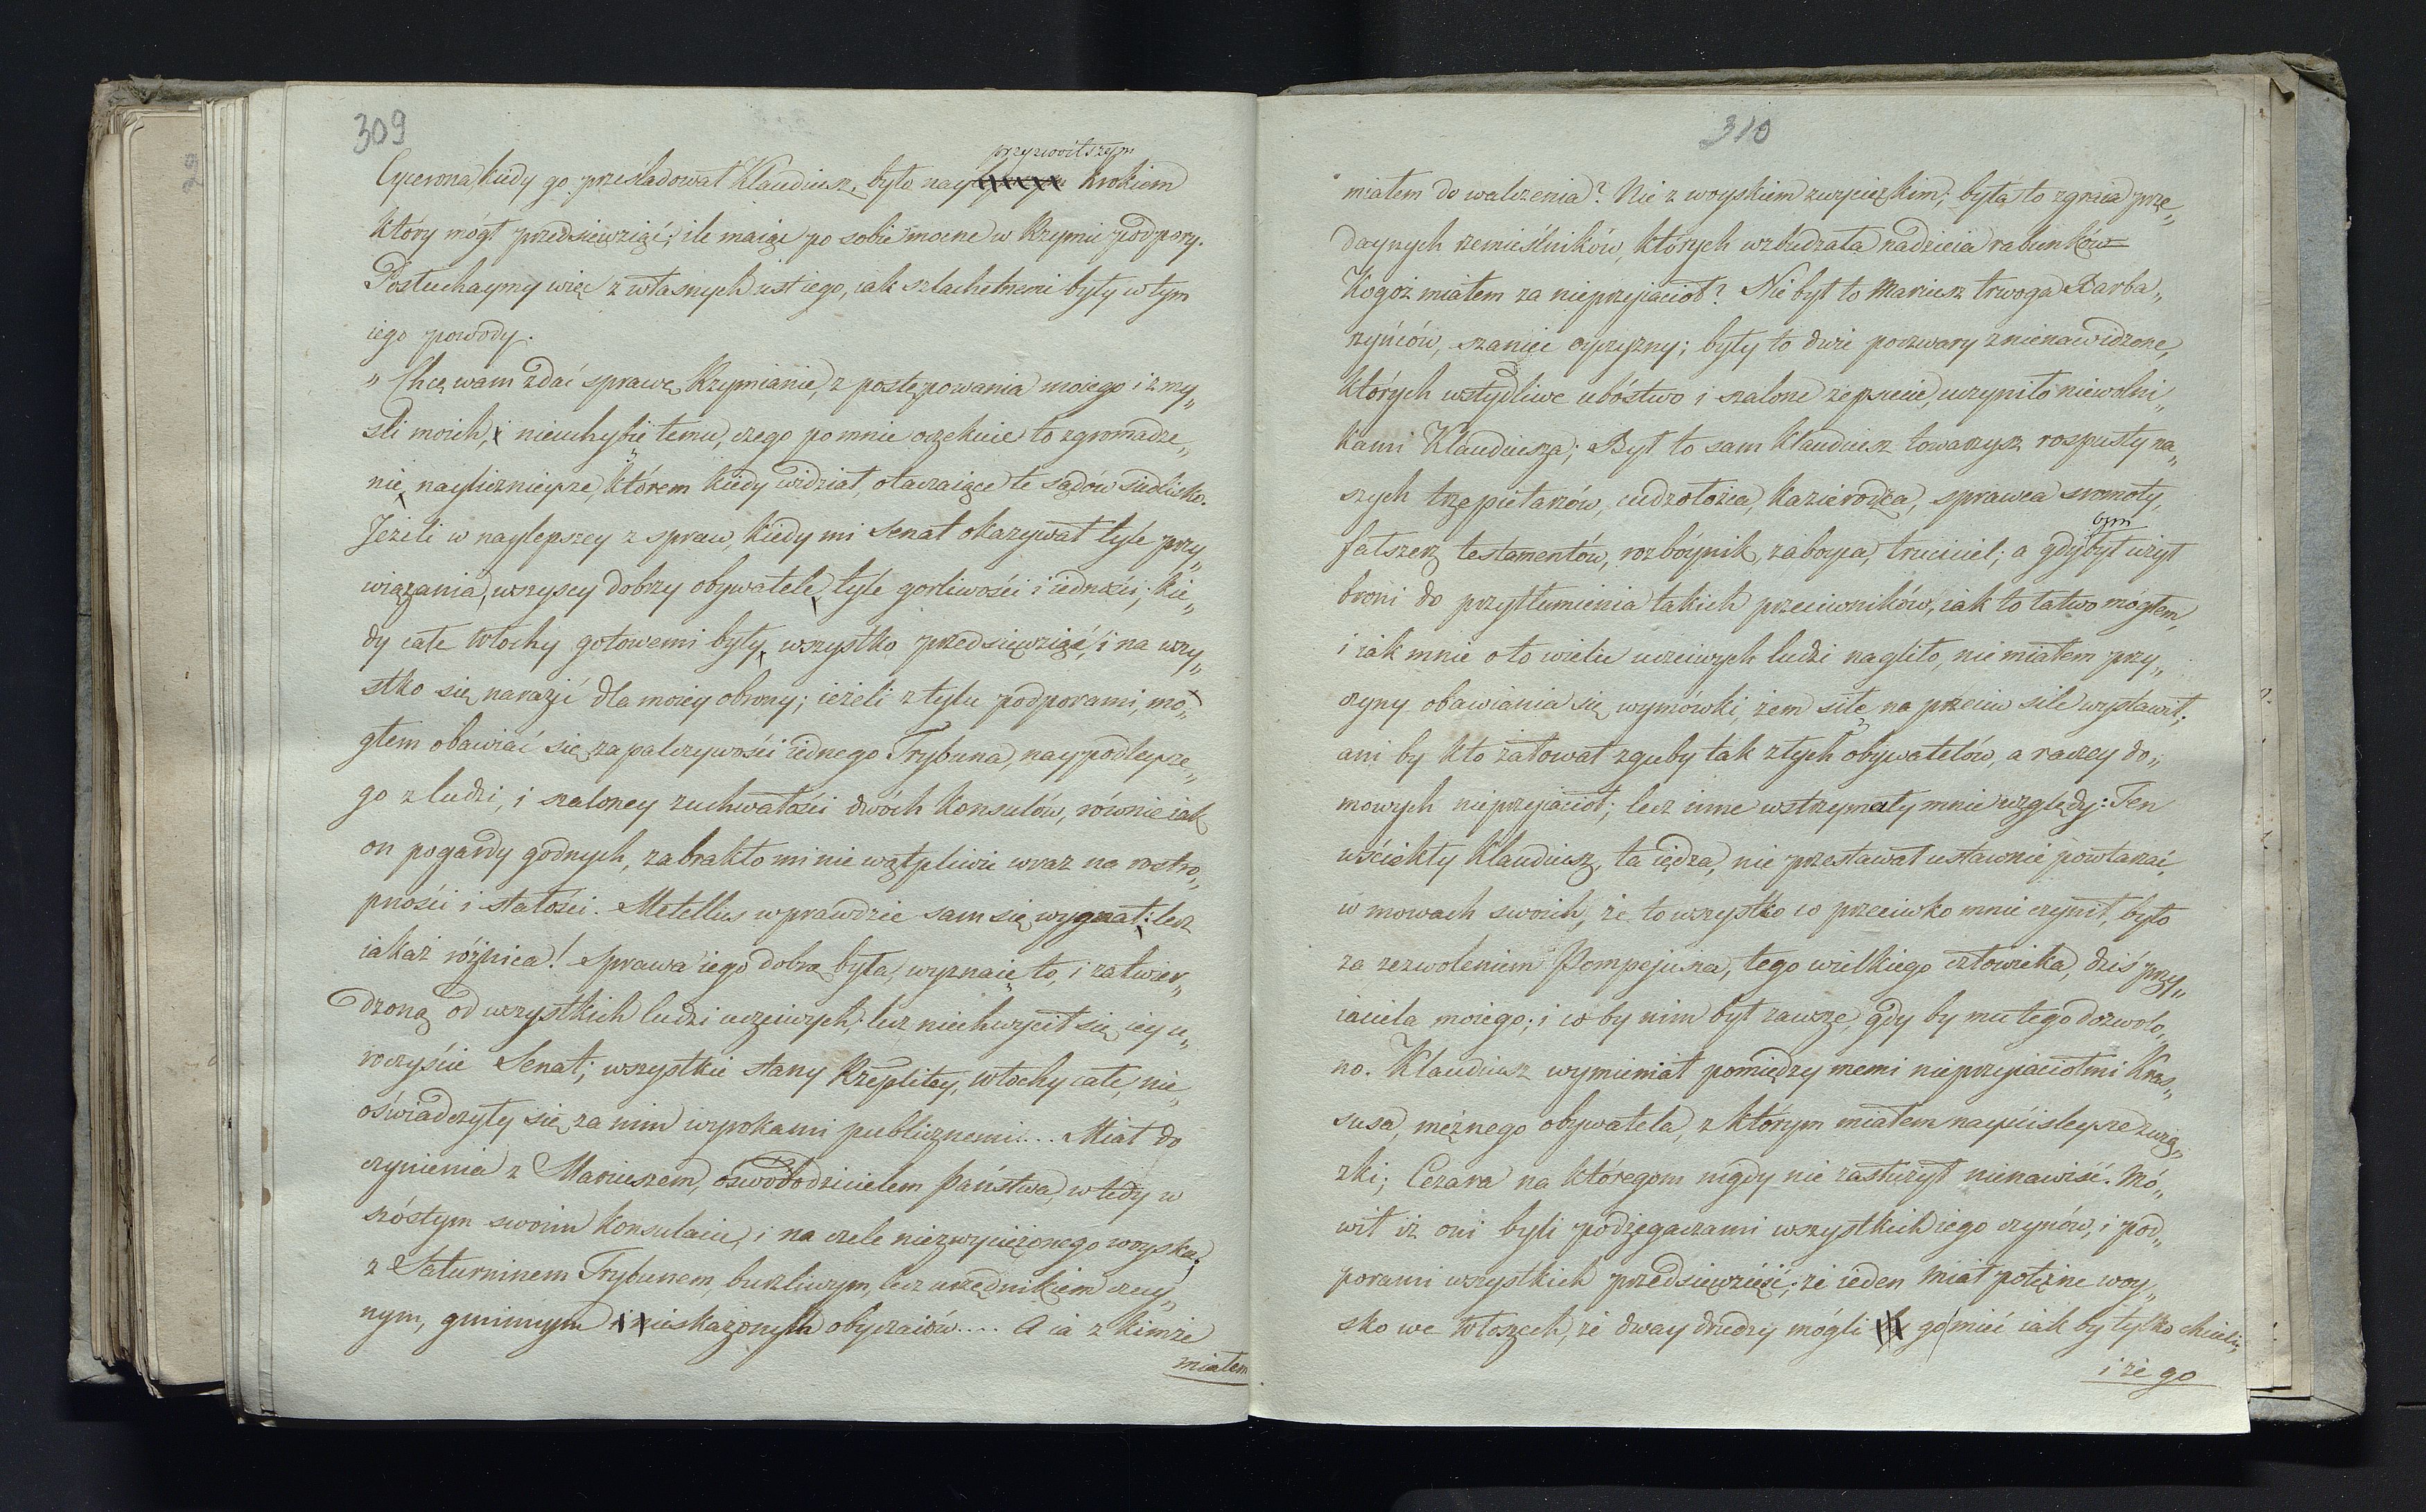 309
przyzwoitszym
Cycerona, kiedy go prześladował Klaudiusz, było nay krokiem
który mógł przedsięwziąć; ile maiąc po sobie mocne w Rzymie podpory.
Posłuchaymy więc z własnych ust iego, iak szlachetnemi były w tym
iego powody.
„Chcę wam zdać sprawę, Rzymianie, z postępowania moiego i z my„
śli moich, i nieuchybię temu, czego po mnie oczekuie to zgromadze„
nie, nayliczniejsze, którem kiedy widział, otaczaiące te sądów siedlisko.
Jeżeli w naylepszey z spraw, kiedy mi Senat okazywał tyle przy„
wiązania, wszyscy dobrzy obywatele, tyle gorliwości i iedności; kie„
dy całe Włochy gotowemi były, wszystko przedsięwziąć, i na wszy„
stko się narazić dla moiey obrony; ieżeli z tylu podporami, mo„
głem obawiać się zapalczywości iednego Trybuna, naypodleysze„
go z ludzi, i szaloney zuchwałości dwóch Konsulów, równie iak
on pogardy godnych, zabrakło mi nie wątpliwie wraz na rostro„
pności i stałości. Metellus wprawdzie sam się wygnał; lecz
iakaż różnica! Sprawa iego dobrą była, wyznaię to, i zatwier„
dzoną od wszystkich ludzi uczciwych; lecz niechwycił się iey u„
roczyście Senat; wszystkie stany Rzeplitey, Włochy całe, nie
oświadczyły się za nim wyrokami publicznemi.... Miał do
czynienia z Mariuszem, oswobodzicielem Państwa, wtedy w
szóstym swoim Konsulacie, i na czele niezwyciężonego woyska;
z Saturninem Trybunem, burzliwym, lecz urzędnikiem czuy„
nym, gminnym i nieskażonych obyczaiów.... A ia z kimże
miałem
310
miałem do walczenia? Nie z woyskiem zwycięzkim; była to zgraia prze„
daynych rzemieślników, których wzbudzała nadzieia rabunków
Kogoż miałem za nieprzyiaciół? Nie był to Mariusz trwoga Barba„
rzyńców, szaniec oyczyzny; były to dwie poczwary znienawidzone,
których wstydliwe ubóstwo i szalone zepsucie, uczyniło niewolni„
kami Klaudiusza; Był to sam Klaudiusz towarzysz rospusty na„
szych trzpietarzów, cudzołożca, kazirodca, sprawca sromoty,
bym
fałszerz testamentów, rozbóynik, zabóyca, truciciel; a gdybył użył
broni do przytłumienia takich przeciwników, iak to łatwo mogłem,
i iak mnie o to wielu uczciwych ludzi nagliło, nie miałem przy„
czyny obawiania się wymówki, żem siłę na przeciw sile wystawił;
ani by kto żałował zguby tak złych obywatelów, a raczey do„
mowych nieprzyiaciół; lecz inne wstrzymały mnie względy: Ten
wściekły Klaudiusz, ta iędza, nie przestawał ustawnie powtarzać,
w mowach swoich, że to wszystko co przeciwko mnie czynił, było
za zezwoleniem Pompejusza, tego wielkiego człowieka, dziś przy„
iaciela moiego; i co by nim był zawsze, gdy by mu tego dozwolo„
no. Klaudiusz wymieniał pomiędzy memi nieprzyiaciołmi Kras„
susa, mężnego obywatela, z którym miałem nayściśleysze zwią„
zki; Cezara na któregom nigdy nie zasłużył nienawiść. Mó„
wił iż oni byli podżegaczami wszystkich iego czynów, i pod„
porami wszystkich przedsięwzięć; że ieden miał potężne woy„
sko we Włoszech, że dway drudzy mogli go mieć iak by tylko chcieli;
i że go